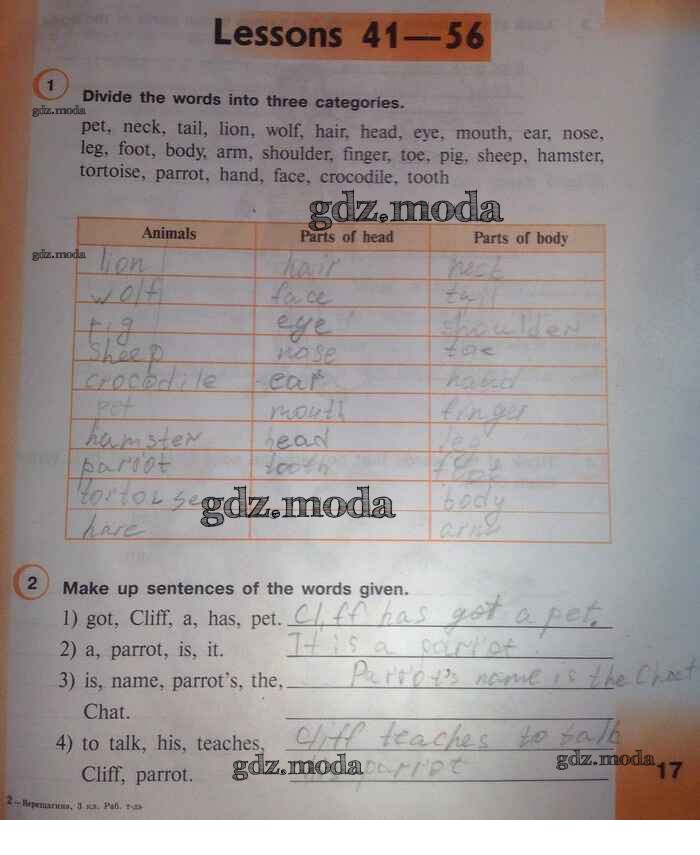 Lessons 41—56
1
Divide the words into three categories.
gdz.moda
pet, neck, tail, lion, wolf, hair, head, eye, mouth, ear, nose,
leg, foot, body, arm, shoulder, finger, toe, pig, sheep, hamster,
tortoise, parrot, hand, face, crocodile, tooth
gdz.moda
Animals Parts of head Parts of body
gdz.moda
lion hair neck
wolf face tail
pig eye shoulder
Sheep nose toe
crocodile ear hand
pet mouth finger
hamster head leg
parrot tooth
tortoise body
gdz.moda
hare arm
2
Make up sentences of the words given.
1) got, Cliff, a, has, pet. Cliff has got a pet.
2) a, parrot, is, it. It is a parrot.
3) is, name, parrot's, the, Parrot's name is the Chat
Chat.
4) to talk, his, teaches, Cliff teaches to talk
Cliff, parrot. parrot
gdz.moda
gdz.moda
17
2—Верещагина, 3 кл. Раб. т-дь